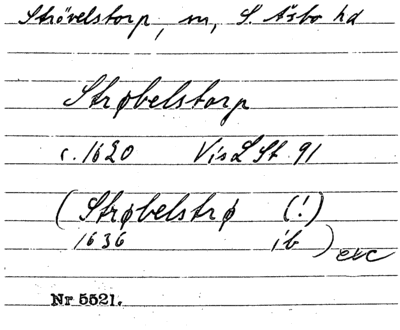 Strövelstorp, sn, S. Åsbo hd
Strøbelstorp
c. 1620 VisLSt 91
(Strøbelstrø (!)
1636 ib) exc
Nr 5521.